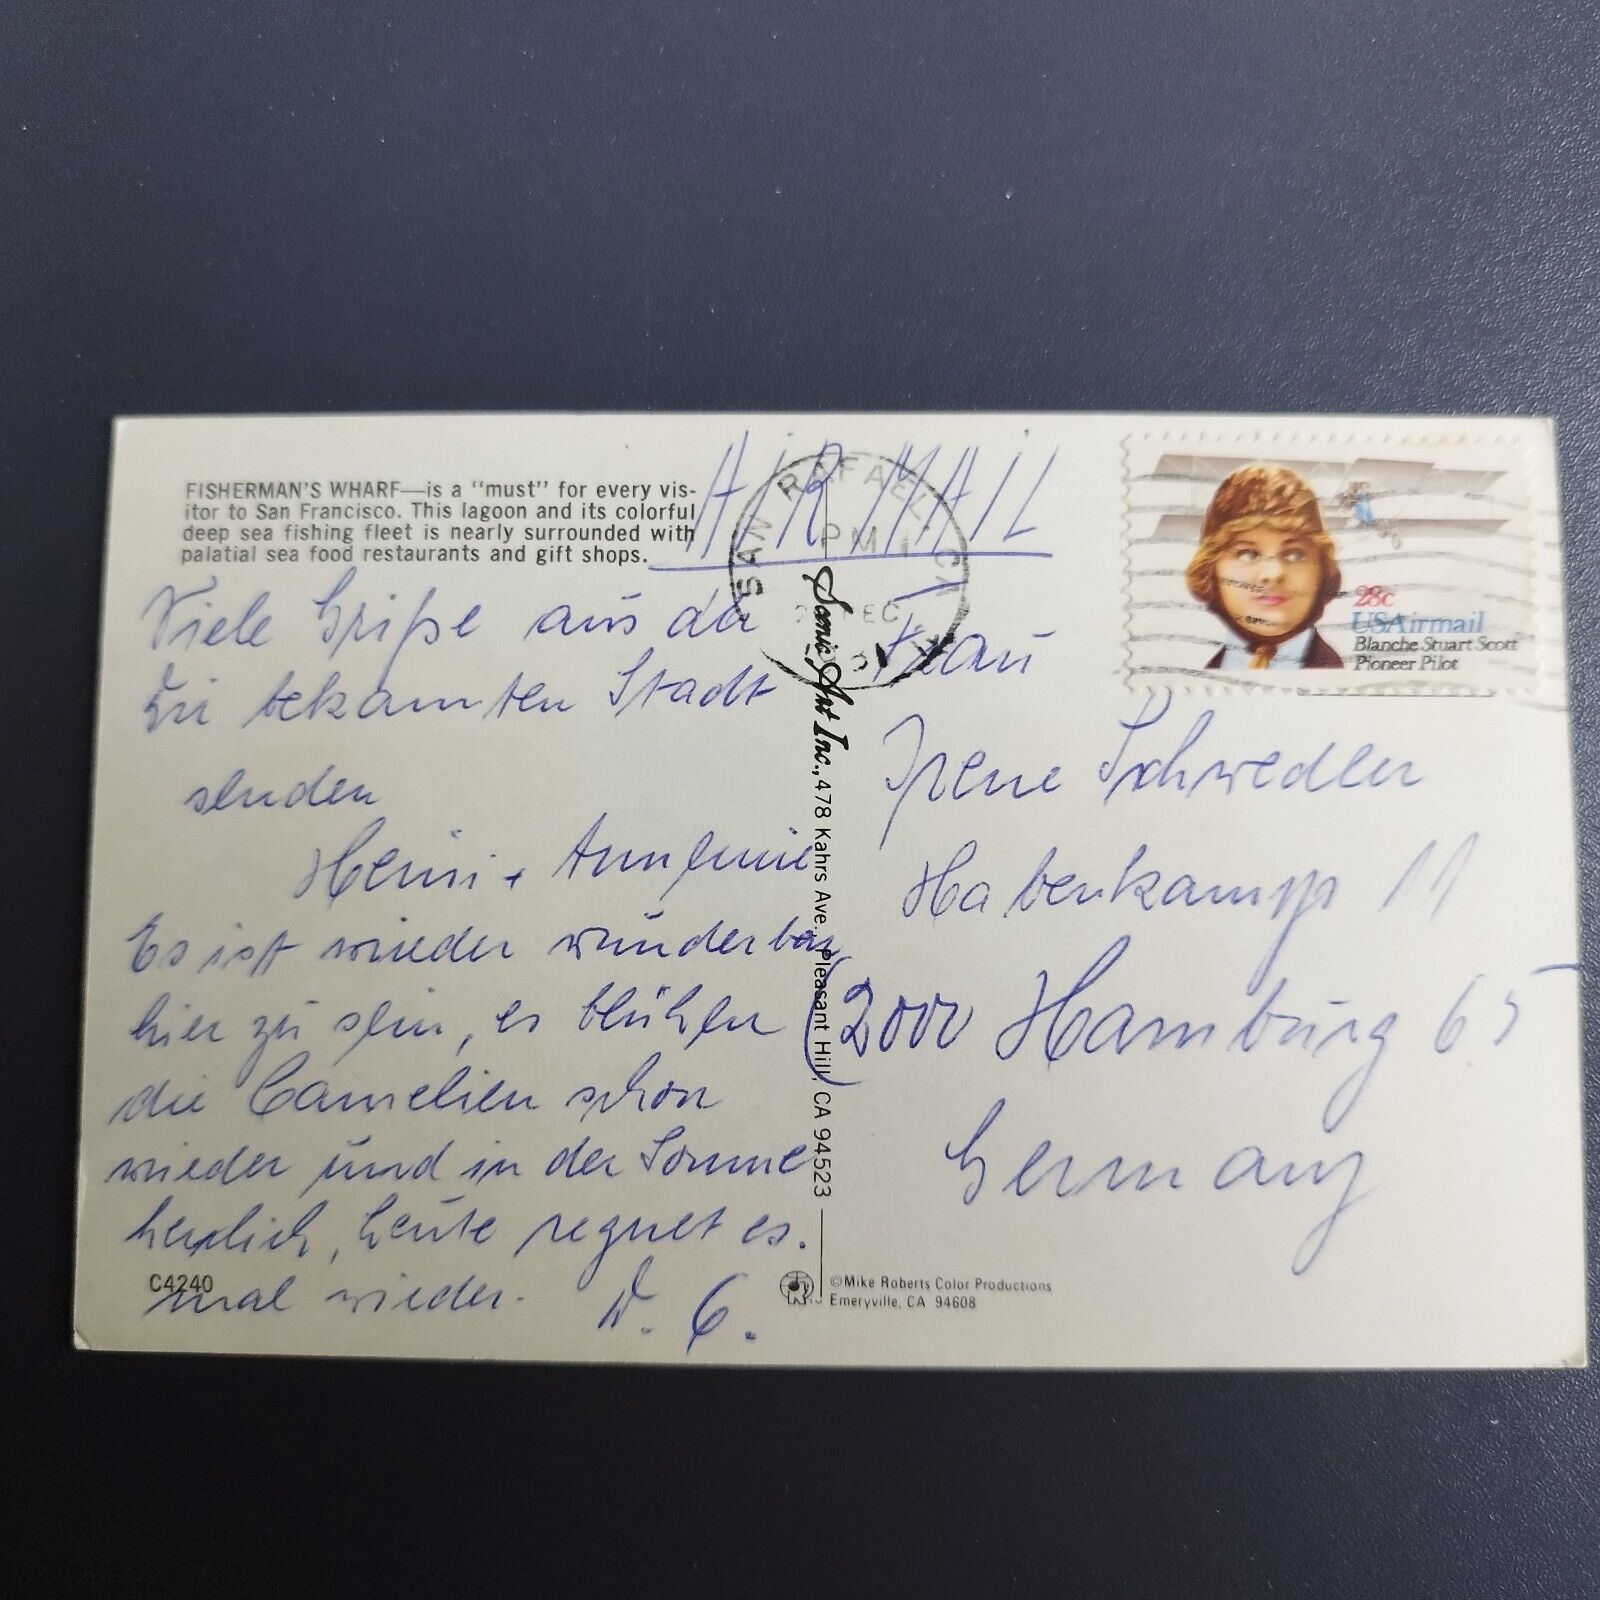 FISHERMAN'S WHARF—is a "must" for every vis-
itor to San Francisco. This lagoon and its colorful
deep sea fishing fleet is nearly surrounded with
palatial sea food restaurants and gift shops.
AIR MAIL
SAN RAFAEL, CA
PM
DEC
28c
USAirmail
Blanche Stuart Scott
Pioneer Pilot
Viele Grüße aus der
bekannten Stadt
senden
Heini + Annemie
Es ist wieder wunderbar
hier zu sein, es blühen
die Camelien schon
wieder und in der Sonne
herrlich, heute regnet es.
mal wieder. D. C.
Frau
Irene Schwedler
Habenkamp 11
2000 Hamburg 65
Germany
Scenic Art Inc., 478 Kahrs Ave., Pleasant Hill, CA 94523
C4240
©Mike Roberts Color Productions
Emeryville, CA 94608